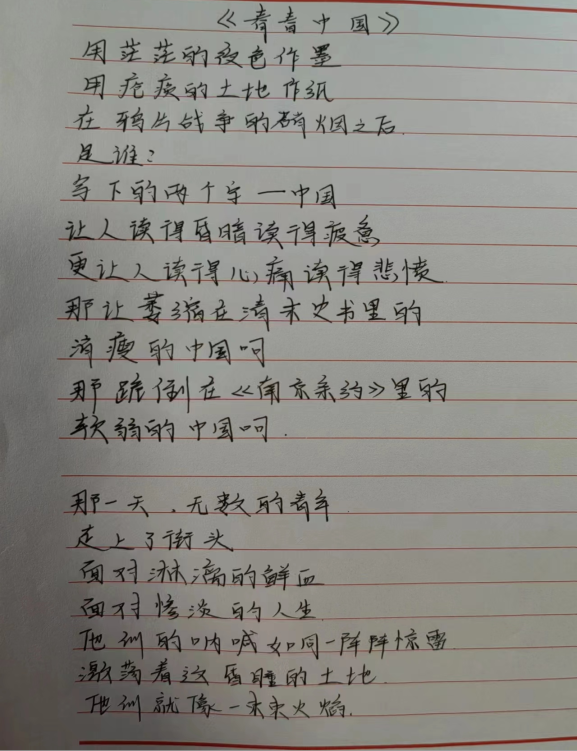 《青青中国》
用茫茫的夜色作墨
用疮痍的土地作纸
在鸦片战争的硝烟之后.
是谁?
写下的两个字一中国
让人读得昏暗读得疲惫
更让人读得心痛读得悲愤
那让萎缩在清末史书里的
消瘦的中国呵
那跪倒在《南京条约》里的
软弱的中国呵.
那一天.无数的青年
走上了街头
面对淋漓的鲜血
面对惨淡的人生
他们的呐喊如同一阵阵惊雷
激荡着这昏睡的土地.
他们就像一束束火焰.